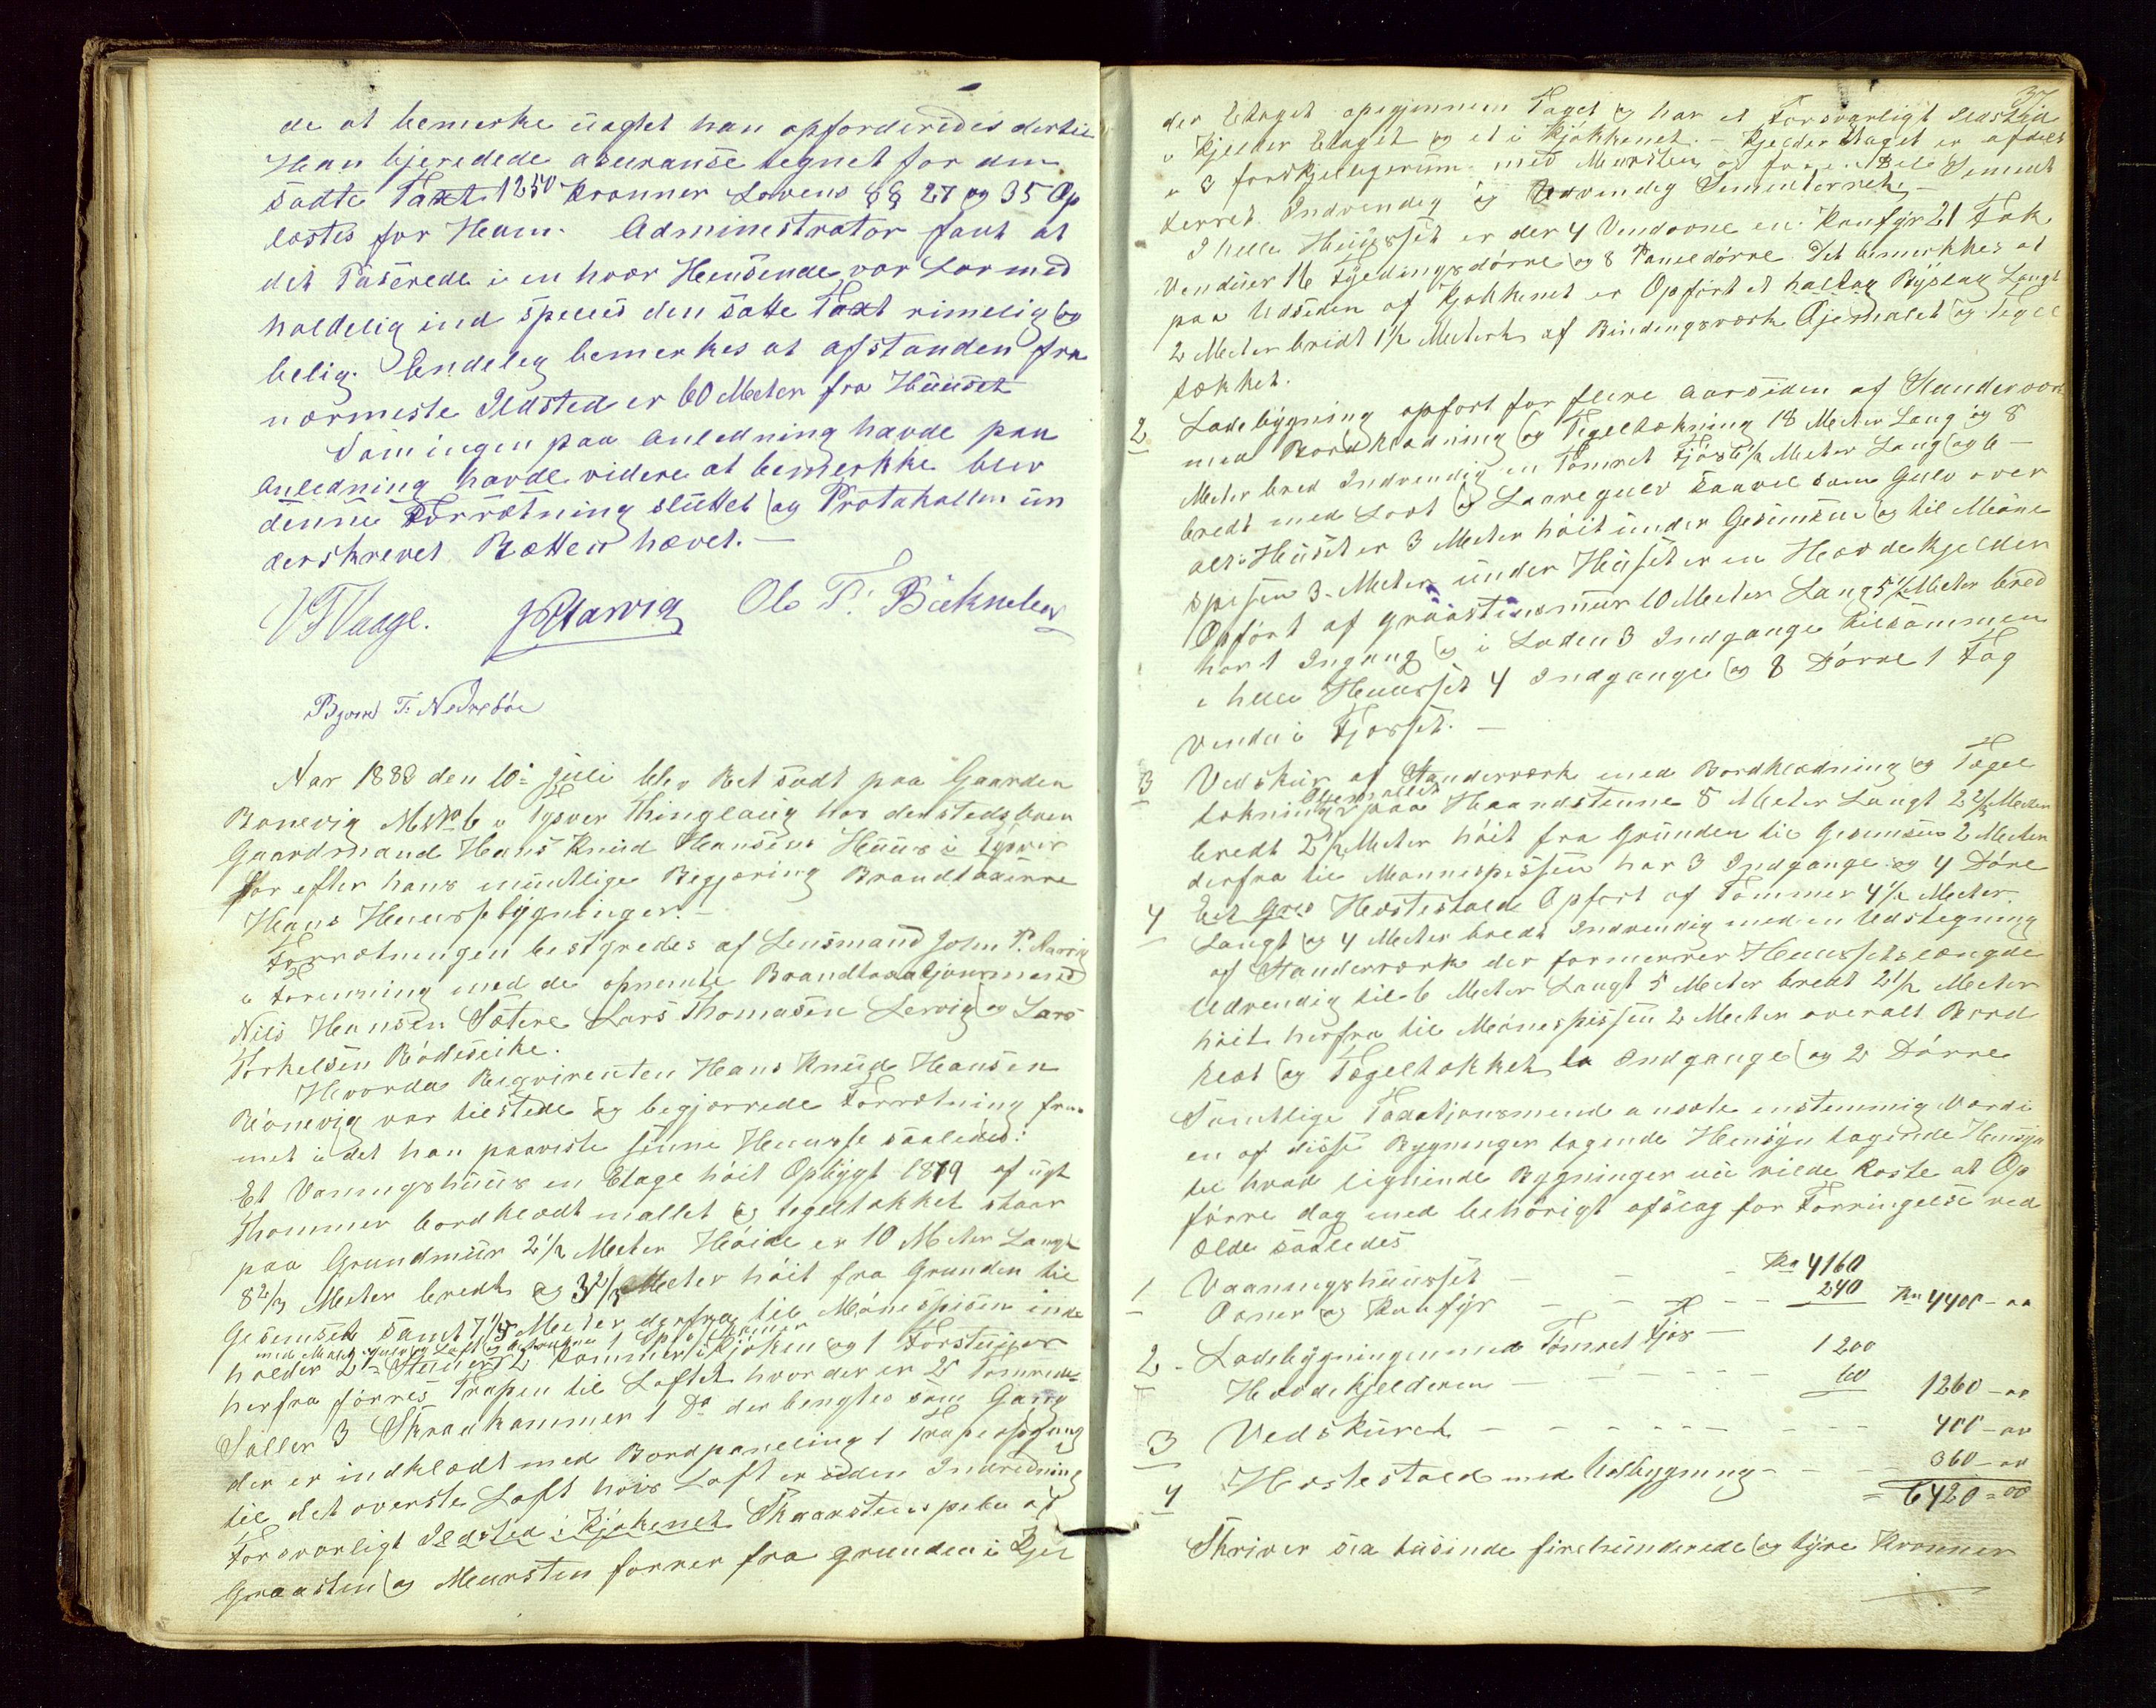 de at bemerke uagtet han opforderedes dertil
Han bjeredede aseuranse tegnet for den
satte Taxt 1250 Kronner Lovens §§ 27 og 35 Op
læstes for Ham. Adminestrator fant at
det Paserede i en hvær Hensende var Lovmed
holdelig ind speles den satte Taxt rimelig og
belig. Endeleg bemerkes at afstanden fra
nærmeste Ildsted er 60 Meter fra Huuset
Da ingen paa anledning havde paa
anledning havde videre at bemerkke blev
denne Forrætning sluttet og Protakollen un
derskrevet Rætten hævet.—
Ole T.
Bjorn T. Nedrebøe
Aar 1888 den 10de Juli blev Ret sadt paa Gaarden
Bonevig M No 6 i Tysver Thinglaug hos den stedsboen
Gaardmand Hans Knud Hansens Huus i Tysver
for efter hans mundtlige Begjæring Brandtaxerre
Hans Huussebygninger.—
Forrætningen bestyredes af Lensmand John P. Narvig
i Forening med de opnemte Brandtaxatjonsmænd
Nils Hansen Sætere Lars Thomasen Lervig og Lars
Torkelsen Rødseike.
Hvorda Reqvirenten Hans Knud Hansen
Bonevig var tilstede og begjærrede Forrætning frem
met i det han paaviste sinne Huusse saaledes:
Et Vaaningshuus en Etage høit Opbygt 1879 af ugt
Thommer bordklædt mallet og tegeltækket staar
paa Grundmuur 2½ Meter Høide er 10 Meter Langt
8⅔ Meter bredt og 3⅔ Meter høit fra Grunden til
Gesemset samt Meter derfra til Mønespisen inde
holder 2 Stuer 2 Kammer 1 Kjøken og 1 Forstuer
herfra førres Trapen til Loftet hvor der er 2 Tømrede
Saller 3 Skraakammer 1 Do der bengtes som Gang
der er indklædt med Bordpaneling 1 Trapeopgang
til det øverste Loft hvis Loft er uden Indredning
Forsvarligt Ildsted i Kjøkenet Skaarstenspibe af
Graasten og Muursten førrer fra grunden i Kjel
37
der Etaget opigjennem Taget og har et Forsvarligt Ildsted
i Kjelder Etaget og et i Kjøkkenet.— Kjelder Etaget er afdelt
i 3 forskjelligerum med Muursten og Sement
terret Indvendig og Udvendig Sementerret.—
I hele Huusset er der 4 Vindovne en Komfyr 21 Fak
Venduer 16 Fyldingsdørre og 8 Paneldørre. Det bemerkkes at
paa Udsiden af Kjøkkenet er Opført et halvtag Byslag Langt
2 Meter bridt 1½ Meter af Bindingsværk Oljemalet og Tegel
tækket.
2 Ladebygning opført for flere Aarsiden af Standerværk
med Bordklædning og Tegeltækning 18 Meter Lang og 8
Meter bred Indvendig en Tømret Fjøs 6½ Meter Lang og 6—
bredt med Loft og Laavegulv saavel som Gulv over
alt. Huset er 3 Meter høit under Gesimsen og til Møne
spisen 3. Meter, under Huset er en Hævdekjelder
Opført af graastensmuur 10 Meter Lang 5½ Meter bred
har 1 Ingang og i Laden 3 Indgange tilsammen
i hele Huusset 4 Indgange og 8 Dørre 1 Fag
Vendu i Fjosset.—
3 Vedskur af Standerværk med Bordklædning og Tegel
tækning Oljemallet paa Haandstenne 8 Meter Langt 2⅔ Meter
bredt 2½ Meter høit fra Grunden til Gesemsen 2 Meter
derfra til Mønnespissen har 3 Indgange og 4 Døre
4 Hestestald Opført af Tømmer 4½ Meter.
Langt og 4 Meter bredt Indvendig med en Udbygning
af Standerværk der formerrer Huussetslængde
Udvendig til 6 Meter Langt 5 Meter bredt 2½ Meter
høit herfra til Mønespissen 2 Meter overalt Bord
klæt og Tægeltækket to Indgange og 2 Dørre
Samtlige Taxatjonsmend ansate enstemmig Værdi
en af disse Bygninger tagende Hensyn tagende Hensyn
til hvad lignende Bygninger nu vilde koste at Op
førre dog med behørigt afslag for Forringelse ved
Ælde saaledes
1 Vaaningshuusset — — — Kr 4160
Ovner og Komfyr — — — — 240 Kr 4400 - 00
2 - Ladebygningen med Tømret Fjøs — 1200
Hævdekjelderen — — — — — 60 1260 - 00
3 Vedskuret — — — — — — — — 400 - 00
4 Hestestald med Udbygning — — — 360 - 00
= 6420 = 00
Skriver sex tusinde firehunderede og tyve Kronner